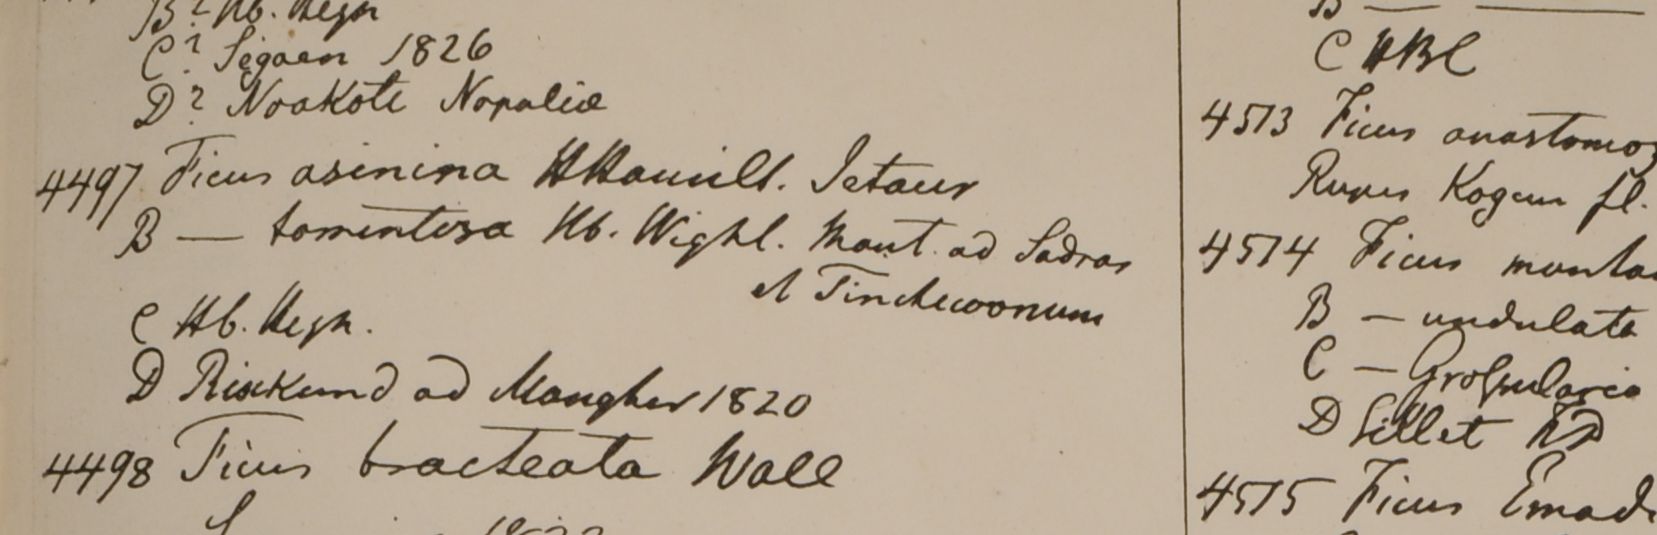 B? Hb. Heyn
C? Segaen 1826
D? Noakote Nopaliæ
4497 Ficus asinina HHamilt. Jetaur
B — tomentosa Hb. Wight. Mont. ad Sadras
et Tinchevoonum
C Hb. Heyn.
D Risikund ad Mongher 1820
4498 Ficus bracteata Wall
B — —
C HBC
4513 Ficus anastomoz
Rupes Kogun fl.
4514 Ficus monta
B — undulata
C — Grossularia
D Sillet
4515 Ficus Emad